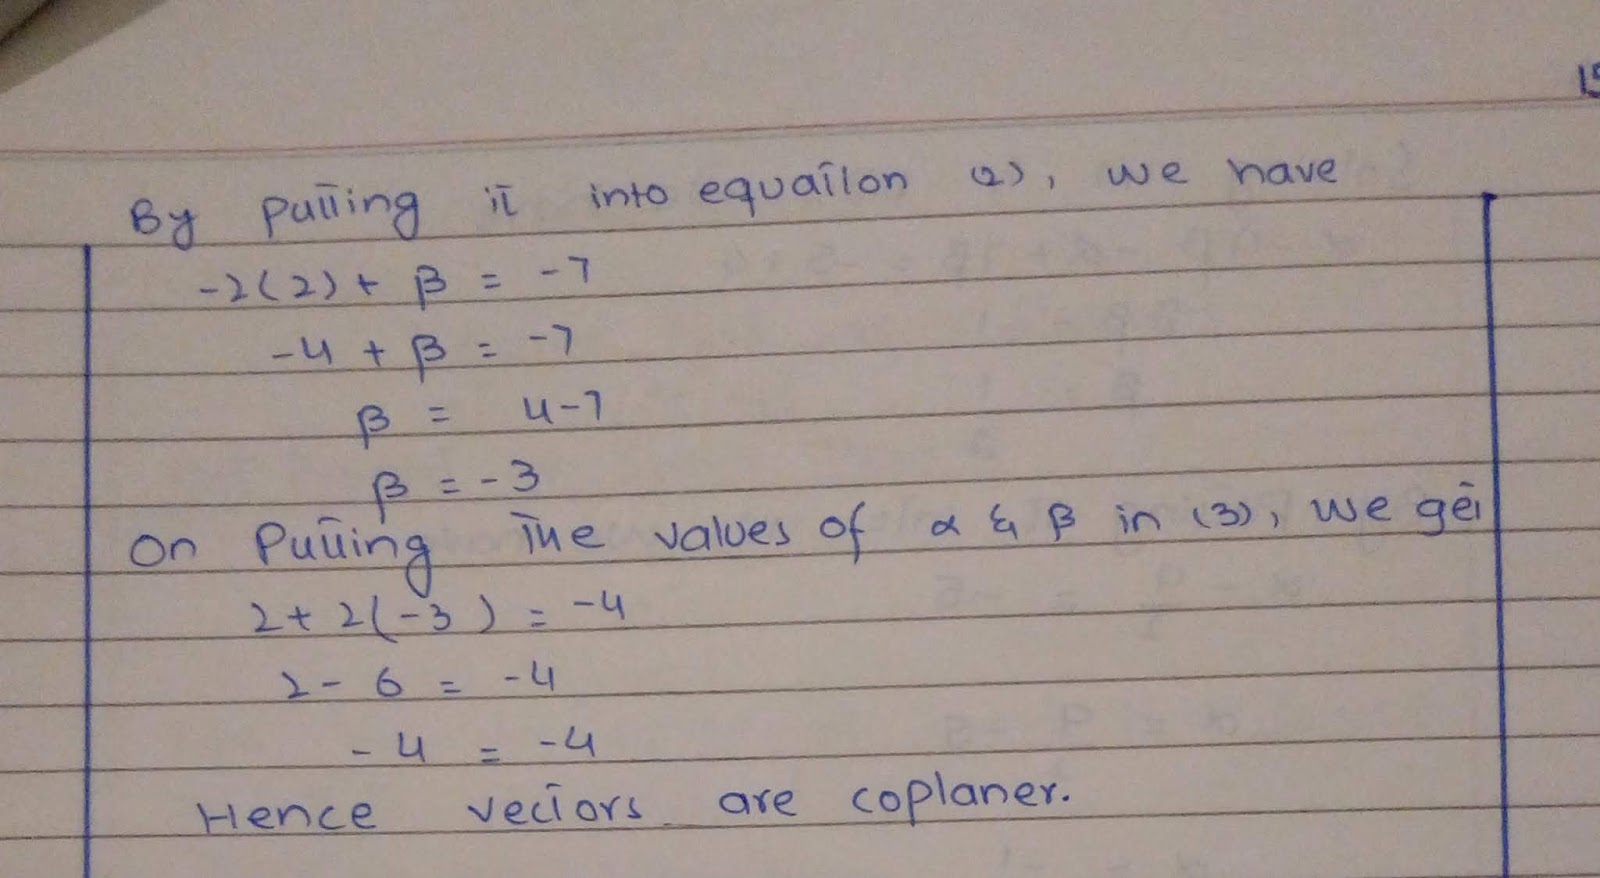 15
By putting it into equation (2), we have
-2(2) + β = -7
-4 + β = -7
β = 4-7
β = -3
On Putting the values of α & β in (3), we get
2 + 2(-3) = -4
2 - 6 = -4
-4 = -4
Hence vectors are coplaner.